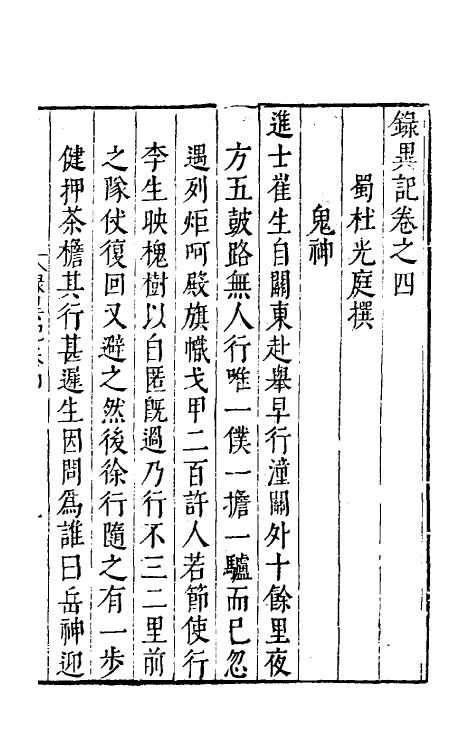 錄異記卷之四
蜀杜光庭撰
鬼神
進士崔生自關東赴舉早行潼關外十餘里夜
方五鼓路無人行唯一僕一擔一驢而已忽
遇列炬呵殿旗幟戈甲二百許人若節使行
李生映槐樹以自匿旣過乃行不三二里前
之隊仗復回又避之然後徐行隨之有一步
健押茶檐其行甚遲生因問爲誰曰岳神迎